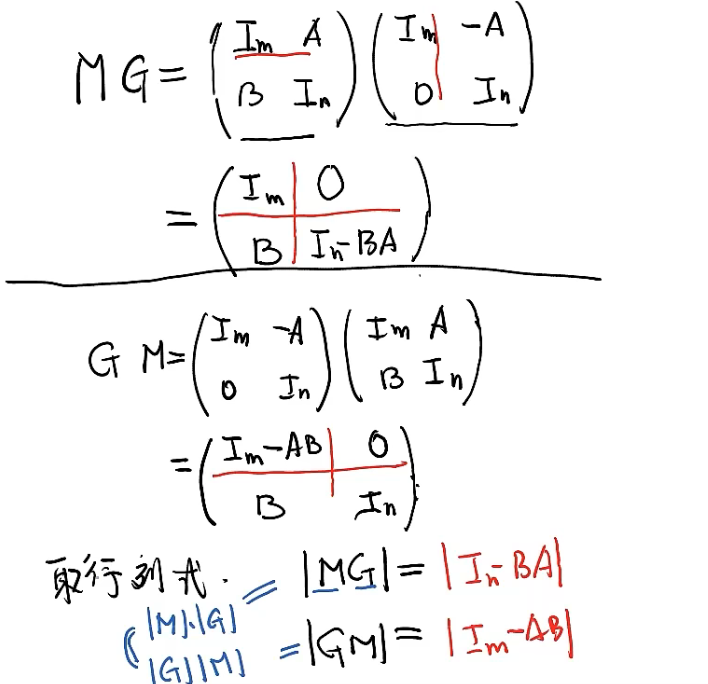 MG = ( I_m A ; B I_n ) ( I_m -A ; 0 I_n )
= ( I_m 0 ; B I_n-BA )
GM = ( I_m -A ; 0 I_n ) ( I_m A ; B I_n )
= ( I_m-AB 0 ; B I_n )
取行列式. = |MG| = |I_n-BA|
|M|·|G|
|G||M| = |GM| = |I_m-AB|